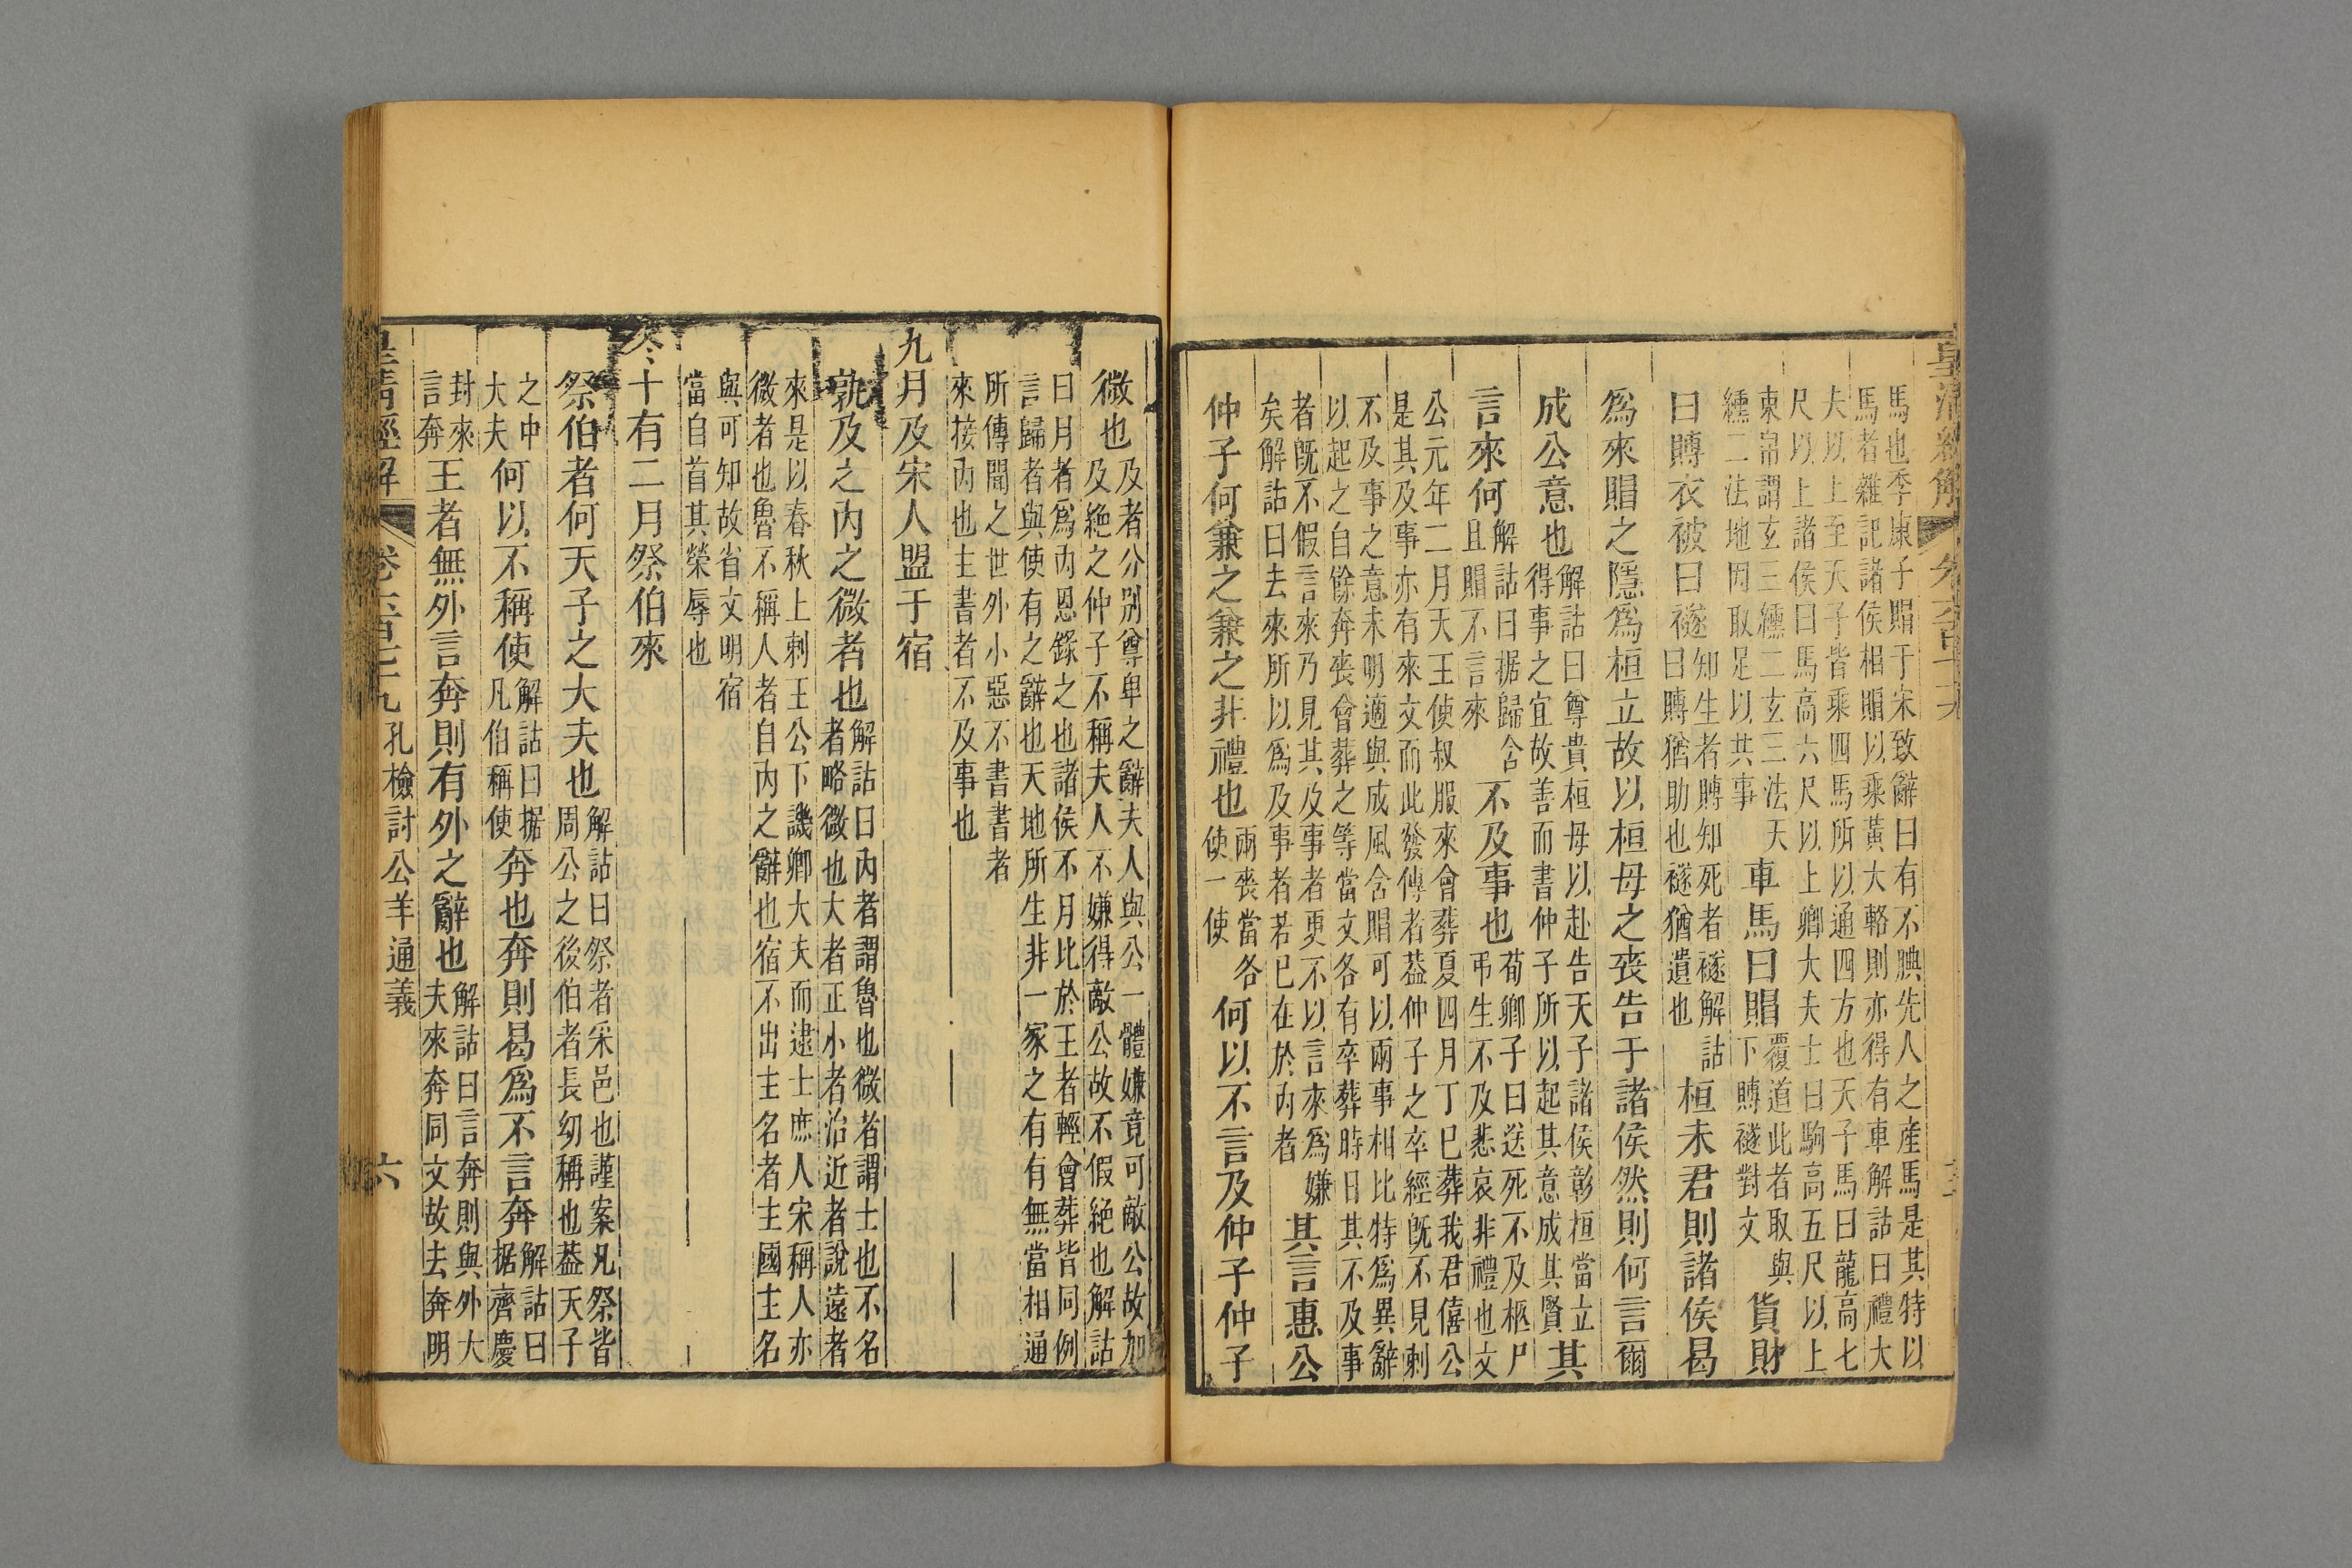 皇清經解
馬也季康子賵于宋致辭曰有不腆先人之產馬是其特以
馬者雜記諸侯相賵以乘黃大輅則亦得有車解詁曰禮大
夫以上至天子皆乘四馬所以通四方也天子馬曰龍高七
尺以上諸侯曰馬高六尺以上卿大夫士曰駒高五尺以上
束帛謂玄三纁二玄三法天纁二法地因取足以共事車馬曰賵覆道此者取與下賻襚對文貨財
曰賻衣被曰襚知生者賻知死者襚解詁曰賻猶助也襚猶遺也桓未君則諸侯曷
爲來賵之隱爲桓立故以桓母之喪告于諸侯然則何言爾
成公意也解詁曰尊貴桓母以赴告天子諸侯彰桓當立得事之宜故善而書仲子所以起其意成其賢其
言來何解詁曰据歸含且賵不言來不及事也荀卿子曰送死不及柩尸弔生不及悲哀非禮也文
公元年二月天王使叔服來會葬夏四月丁巳葬我君僖公
是其及事亦有來文而此發傳者葢仲子之卒經旣不見刺
不及事之意未明適與成風含賵可以兩事相比特爲異辭
以起之自餘奔喪會葬之等當文各有卒葬時日其不及事
者旣不假言來乃見其及事者更不以言來爲嫌矣解詁曰去來所以爲及事者若已在於內者其言惠公
仲子何兼之兼之非禮也兩喪當各使一使何以不言及仲子仲子
微也及者公別尊卑之辭夫人與公一體嫌竟可敵公故加及絶之仲子不稱夫人不嫌得敵公故不假絶也解詁
曰月者爲內恩錄之也諸侯不月比於王者輕會葬皆同例
言歸者與使有之辭也天地所生非一家之有有無當相通
所傳聞之世外小惡不書書者
來接內也主書者不及事也
九月及宋人盟于宿
孰及之內之微者也解詁曰內者謂魯也微者謂士也不名者略微也大者正小者治近者說遠者
來是以春秋上刺王公下譏卿大夫而逮士庶人宋稱人亦
微者也魯不稱人者自內之辭也宿不出主名者主國主名
與可知故省文明宿
當自首其榮辱也
冬十有二月祭伯來
祭伯者何天子之大夫也解詁曰祭者采邑也謹案凡祭皆周公之後伯者長幼稱也葢天子
之中大夫何以不稱使解詁曰据凡伯稱使奔也奔則曷爲不言奔解詁曰据齊慶
封來言奔王者無外言奔則有外之辭也解詁曰言奔則與外大夫來奔同文故去奔明
皇清經解 卷六百七十九 孔檢討公羊通義 六